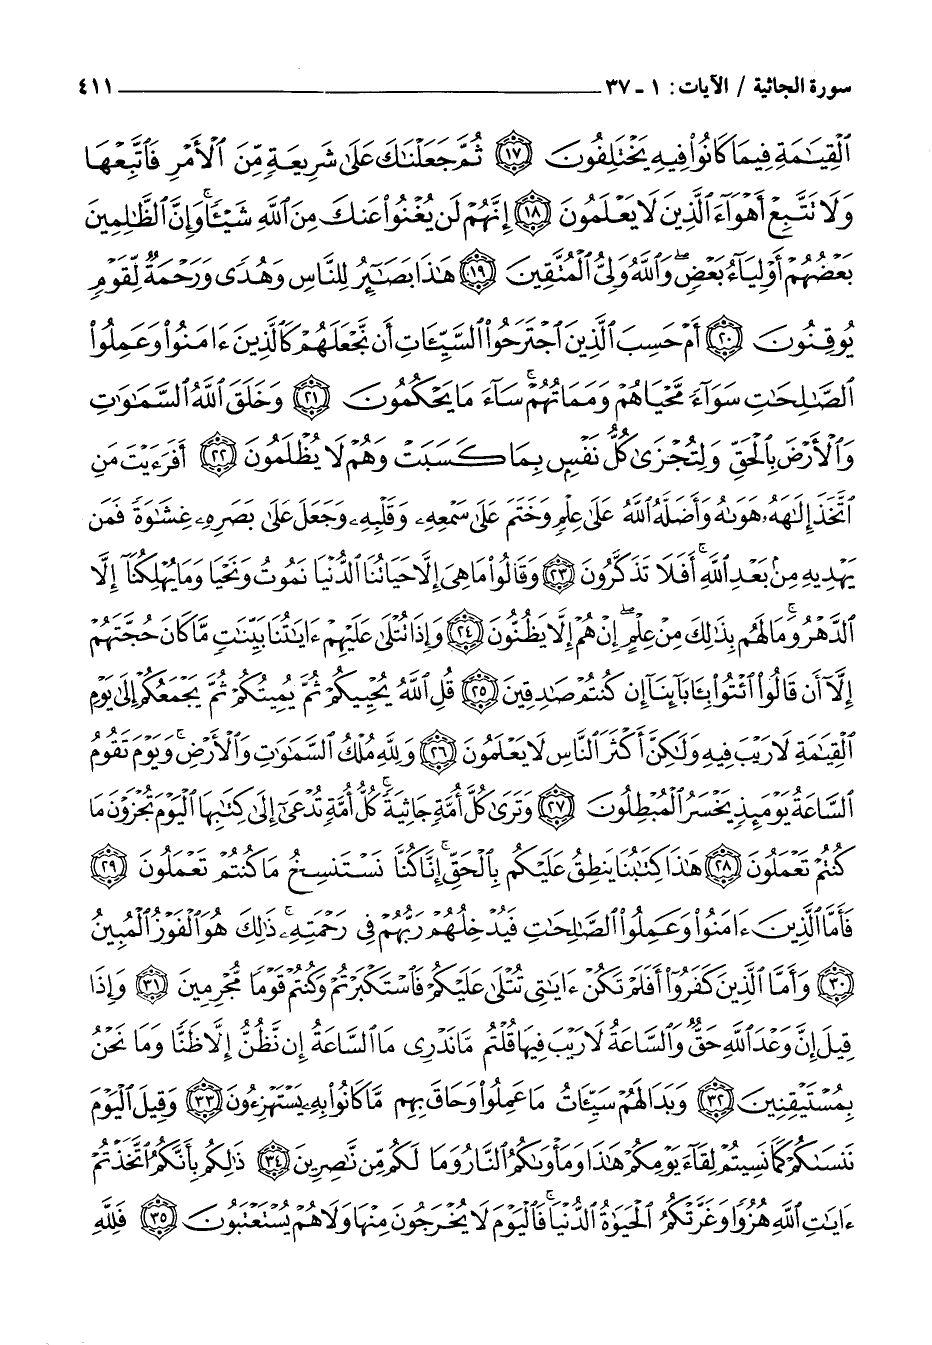 سورة الجاثية / الآيات: ١ - ٣٧ ٤١١
ٱلْقِيَٰمَةِ فِيمَا كَانُوا۟ فِيهِ يَخْتَلِفُونَ ﴿١٧﴾ ثُمَّ جَعَلْنَٰكَ عَلَىٰ شَرِيعَةٍ مِّنَ ٱلْأَمْرِ فَٱتَّبِعْهَا
وَلَا تَتَّبِعْ أَهْوَآءَ ٱلَّذِينَ لَا يَعْلَمُونَ ﴿١٨﴾ إِنَّهُمْ لَن يُغْنُوا۟ عَنكَ مِنَ ٱللَّهِ شَيْـًٔا ۚ وَإِنَّ ٱلظَّٰلِمِينَ
بَعْضُهُمْ أَوْلِيَآءُ بَعْضٍ ۖ وَٱللَّهُ وَلِىُّ ٱلْمُتَّقِينَ ﴿١٩﴾ هَٰذَا بَصَٰٓئِرُ لِلنَّاسِ وَهُدًى وَرَحْمَةٌ لِّقَوْمٍ
يُوقِنُونَ ﴿٢٠﴾ أَمْ حَسِبَ ٱلَّذِينَ ٱجْتَرَحُوا۟ ٱلسَّيِّـَٔاتِ أَن نَّجْعَلَهُمْ كَٱلَّذِينَ ءَامَنُوا۟ وَعَمِلُوا۟
ٱلصَّٰلِحَٰتِ سَوَآءً مَّحْيَاهُمْ وَمَمَاتُهُمْ ۚ سَآءَ مَا يَحْكُمُونَ ﴿٢١﴾ وَخَلَقَ ٱللَّهُ ٱلسَّمَٰوَٰتِ
وَٱلْأَرْضَ بِٱلْحَقِّ وَلِتُجْزَىٰ كُلُّ نَفْسٍۭ بِمَا كَسَبَتْ وَهُمْ لَا يُظْلَمُونَ ﴿٢٢﴾ أَفَرَءَيْتَ مَنِ
ٱتَّخَذَ إِلَٰهَهُۥ هَوَىٰهُ وَأَضَلَّهُ ٱللَّهُ عَلَىٰ عِلْمٍ وَخَتَمَ عَلَىٰ سَمْعِهِۦ وَقَلْبِهِۦ وَجَعَلَ عَلَىٰ بَصَرِهِۦ غِشَٰوَةً فَمَن
يَهْدِيهِ مِنۢ بَعْدِ ٱللَّهِ ۚ أَفَلَا تَذَكَّرُونَ ﴿٢٣﴾ وَقَالُوا۟ مَا هِىَ إِلَّا حَيَاتُنَا ٱلدُّنْيَا نَمُوتُ وَنَحْيَا وَمَا يُهْلِكُنَآ إِلَّا
ٱلدَّهْرُ ۚ وَمَا لَهُم بِذَٰلِكَ مِنْ عِلْمٍ ۖ إِنْ هُمْ إِلَّا يَظُنُّونَ ﴿٢٤﴾ وَإِذَا تُتْلَىٰ عَلَيْهِمْ ءَايَٰتُنَا بَيِّنَٰتٍ مَّا كَانَ حُجَّتَهُمْ
إِلَّآ أَن قَالُوا۟ ٱئْتُوا۟ بِـَٔابَآئِنَآ إِن كُنتُمْ صَٰدِقِينَ ﴿٢٥﴾ قُلِ ٱللَّهُ يُحْيِيكُمْ ثُمَّ يُمِيتُكُمْ ثُمَّ يَجْمَعُكُمْ إِلَىٰ يَوْمِ
ٱلْقِيَٰمَةِ لَا رَيْبَ فِيهِ وَلَٰكِنَّ أَكْثَرَ ٱلنَّاسِ لَا يَعْلَمُونَ ﴿٢٦﴾ وَلِلَّهِ مُلْكُ ٱلسَّمَٰوَٰتِ وَٱلْأَرْضِ ۚ وَيَوْمَ تَقُومُ
ٱلسَّاعَةُ يَوْمَئِذٍ يَخْسَرُ ٱلْمُبْطِلُونَ ﴿٢٧﴾ وَتَرَىٰ كُلَّ أُمَّةٍ جَاثِيَةً ۚ كُلُّ أُمَّةٍ تُدْعَىٰٓ إِلَىٰ كِتَٰبِهَا ٱلْيَوْمَ تُجْزَوْنَ مَا
كُنتُمْ تَعْمَلُونَ ﴿٢٨﴾ هَٰذَا كِتَٰبُنَا يَنطِقُ عَلَيْكُم بِٱلْحَقِّ ۚ إِنَّا كُنَّا نَسْتَنسِخُ مَا كُنتُمْ تَعْمَلُونَ ﴿٢٩﴾
فَأَمَّا ٱلَّذِينَ ءَامَنُوا۟ وَعَمِلُوا۟ ٱلصَّٰلِحَٰتِ فَيُدْخِلُهُمْ رَبُّهُمْ فِى رَحْمَتِهِۦ ۚ ذَٰلِكَ هُوَ ٱلْفَوْزُ ٱلْمُبِينُ
﴿٣٠﴾ وَأَمَّا ٱلَّذِينَ كَفَرُوٓا۟ أَفَلَمْ تَكُنْ ءَايَٰتِى تُتْلَىٰ عَلَيْكُمْ فَٱسْتَكْبَرْتُمْ وَكُنتُمْ قَوْمًا مُّجْرِمِينَ ﴿٣١﴾ وَإِذَا
قِيلَ إِنَّ وَعْدَ ٱللَّهِ حَقٌّ وَٱلسَّاعَةُ لَا رَيْبَ فِيهَا قُلْتُم مَّا نَدْرِى مَا ٱلسَّاعَةُ إِن نَّظُنُّ إِلَّا ظَنًّا وَمَا نَحْنُ
بِمُسْتَيْقِنِينَ ﴿٣٢﴾ وَبَدَا لَهُمْ سَيِّـَٔاتُ مَا عَمِلُوا۟ وَحَاقَ بِهِم مَّا كَانُوا۟ بِهِۦ يَسْتَهْزِءُونَ ﴿٣٣﴾ وَقِيلَ ٱلْيَوْمَ
نَنسَىٰكُمْ كَمَا نَسِيتُمْ لِقَآءَ يَوْمِكُمْ هَٰذَا وَمَأْوَىٰكُمُ ٱلنَّارُ وَمَا لَكُم مِّن نَّٰصِرِينَ ﴿٣٤﴾ ذَٰلِكُم بِأَنَّكُمُ ٱتَّخَذْتُمْ
ءَايَٰتِ ٱللَّهِ هُزُوًا وَغَرَّتْكُمُ ٱلْحَيَوٰةُ ٱلدُّنْيَا ۚ فَٱلْيَوْمَ لَا يُخْرَجُونَ مِنْهَا وَلَا هُمْ يُسْتَعْتَبُونَ ﴿٣٥﴾ فَلِلَّهِ